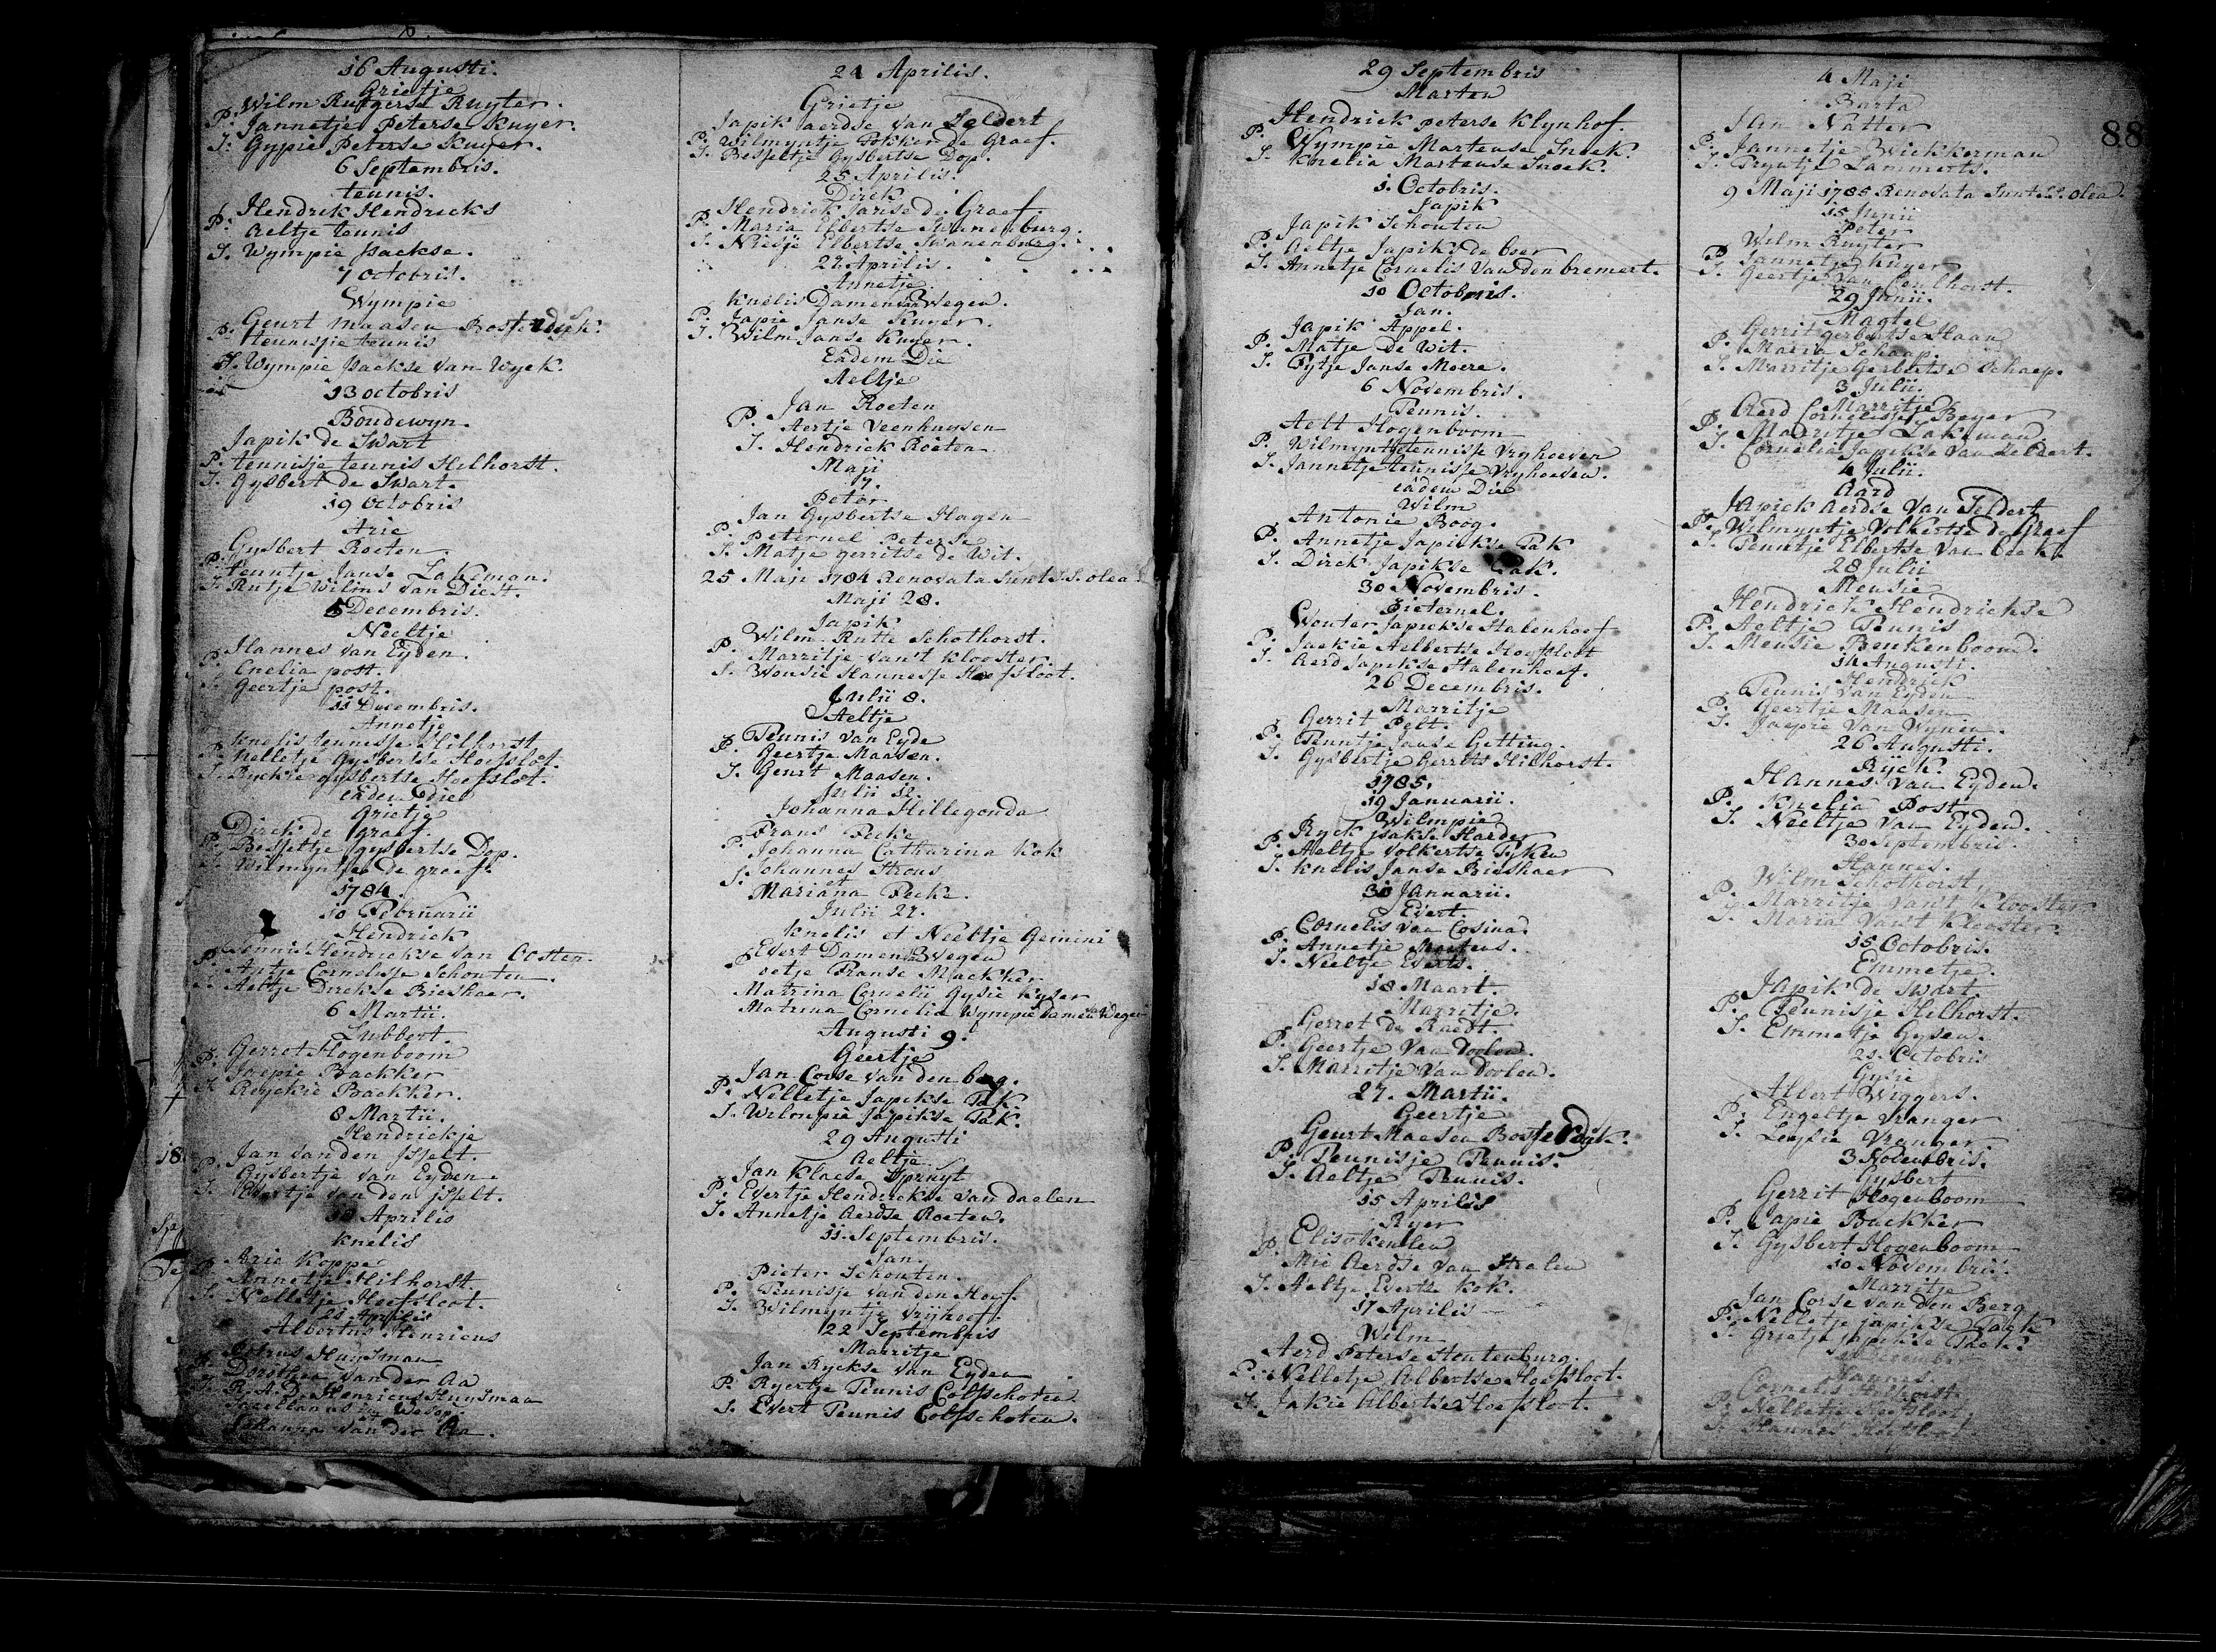 16 Augusti.
Grietje
Wilm Rutgerse Ruyter.
P. Jannetje Peterse Kuyer.
S. Gypie Peterse Kuyer.
6 Septembris.
teunis.
Hendrik Hendricks
P. Aeltje teunis
S. Wympie Isackse.
7 octobris.
Wympie
Geurt Maasen Bosterdyk.
P. teunisjie teunis
S. Wympie Isackse van Wyck.
13 octobris
Boudewyn.
Japik de Swart
P. teunisje teunis Hilhorst.
S. Gysbert de Swart.
19 Octobris
Arie
Gysbert Roeten.
P. teuntje Janse Lakeman.
S. Rutje Wilms van Diest.
5 Decembris.
Neeltje
Hannes van Eyden.
P. Cnelia post.
S. Geertje post.
11 Decembris.
Annetje
Knelis teunisse Hilhorst
P. Nelletje Gysbertse Hoefsloot.
S. Ryckie gysbertse Hoefsloot.
eadem die
Grietje
Dirck de graef.
P. Besseltje gysbertse Dop.
S. Wilmyntje de graef.
1784.
10 Februarii
Hendrick
Teunis Hendrickse van Oosten.
P. Antje Cornelisse Schouten
S. Aeltje Dirckse Bieshaer.
6 Martii.
Lubbert.
Gerret Hogenboom
P. Jaepie Backker
S. Reyckie Backker.
8 Martii.
Hendrickje
Jan van den Isselt.
P. Gysbertje van Eyden
S. Evertje van den isselt.
10 Aprilis
Knelis
Arie Kopper
P. Annetje Hilhorst.
S. Nelletje Hoefsloot.
21 Aprilis
Albertus Henricus
Petrus Huysman
P. Dorothea van der Aa
S. R. A. D. Henricus Huysman
et
Johanna van der Aa.
24 Aprilis.
Grietje
Japik aerdse van Zeldert
P. Wilmyntje Folkker de Graef.
S. Besseltje Gysbertse Dop.
25 Aprilis.
Dirck
Hendrick Janse de Graef
P. Maria Elbertse Swanenburg.
S. Niesje Elbertse Swanenburg.
27 Aprilis.
Annetje
Knelis Damen van Wegen.
P. Japie Janse Kuyer.
S. Wilm Janse Kuyer.
Eadem Die
Aeltje
Jan Roeten
P. Aertje Veenhuysen
S. Hendrick Roeten
Maji
7.
Peter
Jan Gysbertse Hagen
P. Peternel Peterse
S. Matje gerritse de Wit.
25 Maji 1784 Renovata sunt S.S. olea.
Maji 28.
Japik
Wilm Rutte Schothorst.
P. Marritje van't Klooster
S. Wousie Hannesse Hoefsloot.
Julii 8.
Aeltje
Teunis van Eyde
P. Geertje Maasen.
S. Geurt Maasen.
Julii 12.
Johanna Hillegonda
Frans Fecke
P. Johanna Catharina Kok
S. Johannes Strous
et
Mariana Fecke.
Julii 27.
Knelis et Neeltje Gemini
Evert Damen van Wegen
P. oetje Franse Mackker
Matrina Cornelii Gysie Kyser
Matrina Cornelia Wympie Damen van Wegen
Augusti 9.
Geertje
Jan Corse van den berg.
P. Nelletje Japikse Tak
S. Wilmpie Japikse Tak.
29 Augusti
Aeltje
Jan Klaese Spruyt
P. Evertje Hendrickse van daelen
S. Annetje Aerdse Roeten.
11. Septembris.
Jan.
Pieter Schouten.
P. Teunisje van den Hoef.
S. Wilmyntje Vryhoef.
22 Septembris
Marritje
Jan Ryckse van Eyden
P. Ryertje Teunis Colfschoten
S. Evert Teunis Colfschoten.
29 Septembris
Marten
Hendrick peterse Klynhof.
P. Wympie Martense Snoek.
S. Knelia Martense Snoek.
1. Octobris.
Japik
Japik Schouten
P. Aeltje Japik de boer
S. Annetje Cornelis van den bremert.
10 Octobris.
Jan.
Japik Appel.
P. Matje de Wit.
S. Fytje Janse Moere.
6 Novembris.
Teunis.
Aelt Hogenboom
P. Wilmyntje teunisse Vryhoeven
S. Jannetje teunisse Vryhoeven.
eadem Die
Wilm
Antonie Boog.
P. Annetje Japickse Tak
S. Dirck Japikse Tak.
30 Novembris.
Pieternel.
Wouter Japickse Stalenhoef
P. Jaekie Aelbertse Hoefsloot
S. Aerd Japikse Stalenhoef.
26 Decembris.
Marritje
Gerrit Pelt.
P. Teuntje Janse Getting.
S. Gysbertje Gerrits Hilhorst.
1785.
19 Januarii.
Wilmpie
Ryck isakse Harder
P. Aeltje Volkertse Tyken
S. Knelis Janse Bieshaer
30 Januarii.
Evert.
Cornelis van Cosina.
P. Annetje Mertens.
S. Neeltje Everts.
18 Maart.
Marritje.
Gerret de Raedt.
P. Geertje van Doolen.
S. Marritje van Doolen.
27. Martii.
Geertje
Geurt Maesen Bosterdyk.
P. Teunisje Teunis.
S. Aeltje Teunis.
15 Aprilis
Ryer
Elis Kenlen
P. Mie Aerdse van Stralen
S. Aeltje Everts Kok.
17 Aprilis
Wilm
Aerd Peterse Stoutenburg.
P. Nelletje Albertse Hoefsloot.
S. Jakie Albertse Hoefsloot.
88
4 Maji
Barta
Jan Natter
P. Jannetje Wickkerman
S. Pryntje Lammerts.
9 Maji 1785 Renovata Sunt S.S. olea.
15 Junii
Peter
Wilm Ruyter
P. Jannetje Kuyer
S. Geertje van Coulhorst.
29 Junii.
Magtel
Gerrit gerbertse Haan
P. Maria Schaap.
S. Marritje Gerbertse Schaep.
3 Julii.
Marritje
Aerd Cornelisse Beyer
P. Marritje Lakeman.
S. Cornelia Japikse van Zeldert.
4 Julii.
Aard
Japick Aerdse van Seldert
P. Wilmyntje Volkertse de Graef
S. Teuntje Elbertse van Eck.
28 Julii
Meusie
Hendrick Hendrickse
P. Aeltje Teunis
S. Meusie Benkenboom.
14 Augusti.
Hendrick
Teunis van Eyden
P. Geertje Maasen
S. Jaepie van Wynen.
26 Augusti.
Ryck.
Hannes van Eyden.
P. Knelia Post
S. Neeltje van Eyden.
30 Septembris.
Hannes.
Wilm Schothorst,
P. Marritje van't Klooster
S. Maria van't Klooster.
15 Octobris.
Emmetje.
Japik de Swart
P. Teunisje Hilhorst.
S. Emmetje Gysen.
21. Octobris
Gysie
Albert Wiggers.
P. Engeltje Vranger
S. Leysie Vranger
3 Novembris.
Gysbert
Gerrit Hogenboom
P. Japie Backker
S. Gysbert Hogenboom
10 Novembris.
Marritje
Jan Corse van den Berg
P. Nelletje japikse Taek
S. Grietje japikse Taek.
Hannes.
Cornelis Hilhorst.
P. Nelletje Hoefsloot
S. Hannes Hoefsloot